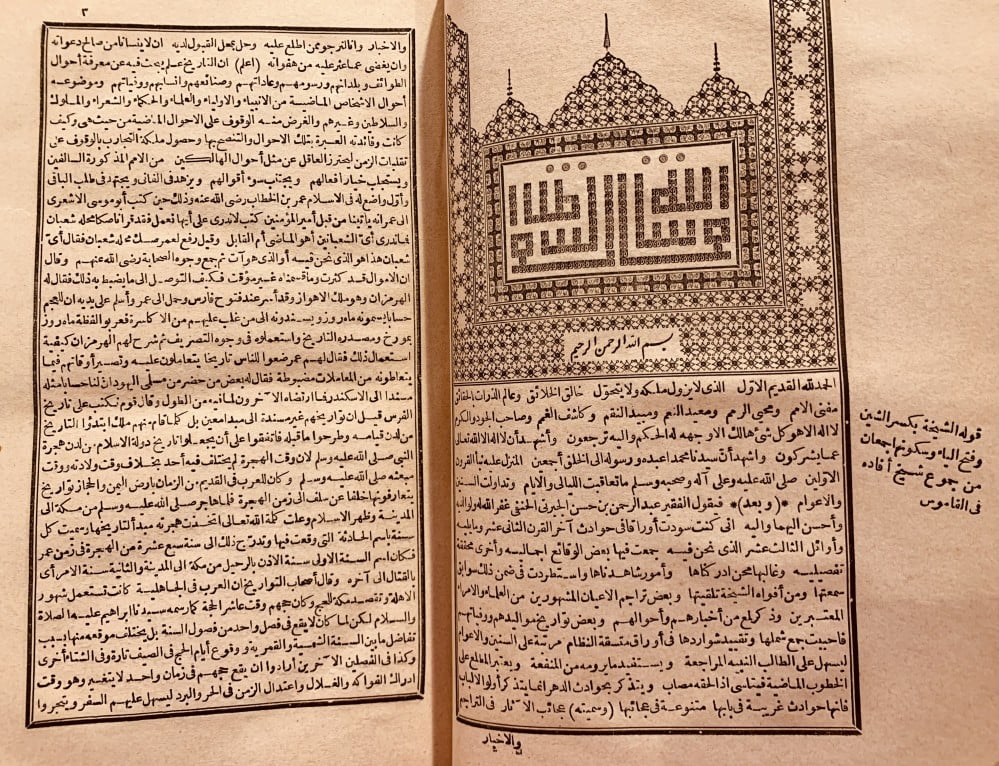 بسم الله الرحمن الرحيم
الحمد لله القديم الاول الذى لا يزول ملكه ولا يتحول خالق الخلائق وعالم الذرات بالحقائق
مفنى الامم ومحيى الرمم ومعيد النعم ومبيد النقم وكاشف الغمم وصاحب الجود والكرم
لا اله الا هو كل شئ هالك الا وجهه له الحكم واليه ترجعون وأشهد أن لا اله الا الله تعالى
عما يشركون وأشهد أن سيدنا محمدا عبده ورسوله الى الخلق أجمعين المنزل عليه نبأ القرون
الاولين صلى الله عليه وعلى آله وصحبه وسلم ما تعاقبت الليالى والايام وتداولت السنين
والاعوام *(وبعد)* فيقول الفقير عبد الرحمن بن حسن الجبرتى الحنفى غفر الله له ولوالديه
وأحسن اليهما واليه انى كنت سودت أوراقا فى حوادث آخر القرن الثانى عشر وما يليه
وأوائل الثالث عشر الذى نحن فيه جمعت فيها بعض الوقائع اجمالية وأخرى محققة
تفصيلية وغالبها محن أدركناها وأمور شاهدناها واستطردت فى ضمن ذلك سوابق
سمعتها ومن أفواه الشيخة تلقيتها وبعض تراجم الاعيان المشهورين من العلماء والامراء
المعتبرين وذكر لمع من أخبارهم وأحوالهم وبعض تواريخ مواليدهم ووفياتهم
فأحببت جمع شملها وتقييد شواردها فى أوراق متسقة النظام مرتبة على السنين والاعوام
ليسهل على الطالب النبيه المراجعة ويستفيد ما يرومه من المنفعة ويعتبر المطلع على
الخطوب الماضية فيتأسى اذا لحقه مصاب ويتذكر بحوادث الدهر انما يتذكر أولو الالباب
فانها حوادث غريبة فى بابها متنوعة فى عجائبها (وسميته) عجائب الآثار فى التراجم
والاخبار
قوله الشيخة بكسر الشين
وفتح الياء وسكونها جمعان
من جموع شيخ أفاده
فى القاموس
٣
والاخبار وانا لنرجو ممن اطلع عليه وحل بمحل القبول لديه ان لا ينسانا من صالح دعواته
وان يغضى عما عثر عليه من هفواته (اعلم) ان التاريخ علم يبحث فيه عن معرفة أحوال
الطوائف وبلدانهم ورسومهم وعاداتهم وصنائعهم وأنسابهم ووفياتهم وموضوعه
أحوال الاشخاص الماضية من الانبياء والاولياء والعلماء والحكماء والشعراء والملوك
والسلاطين وغيرهم والغرض منه الوقوف على الاحوال الماضية من حيث هى وكيف
كانت وفائدته العبرة بتلك الاحوال والتنصح بها وحصول ملكة التجارب بالوقوف على
تقلبات الزمن ليحترز العاقل عن مثل أحوال الهالكين من الامم المذكورة السالفين
ويستجلب خيار أفعالهم ويجتنب سوء أقوالهم ويزهد فى الفانى ويجتهد فى طلب الباقى
وأول واضع له فى الاسلام عمر بن الخطاب رضى الله عنه وذلك حين كتب أبو موسى الاشعرى
الى عمر انه يأتينا من قبل أمير المؤمنين كتب لا ندرى على أيها نعمل فقد قرأنا صكا محله شعبان
فما ندرى أى الشعبانين أهو الماضى أم القابل وقيل رفع لعمر صك محله شعبان فقال أى
شعبان هذا هو الذى نحن فيه أو الذى هو آت ثم جمع وجوه الصحابة رضى الله عنهم وقال
ان الاموال قد كثرت وما قسمناه غير مؤقت فكيف التوصل الى ما يضبط به ذلك فقال له
الهرمزان وهو ملك الاهواز وقد أسر عند فتوح فارس وحمل الى عمر وأسلم على يديه ان للعجم
حسابا يسمونه ماه روز ويسندونه الى من غلب عليهم من الاكاسرة فعربوا لفظة ماه روز
بمورخ ومصدره التاريخ واستعملوه فى وجوه التصريف ثم شرح لهم الهرمزان كيفية
استعمال ذلك فقال لهم عمر ضعوا للناس تاريخا يتعاملون عليه وتصير أوقاتهم فيما
يتعاطونه من المعاملات مضبوطة فقال له بعض من حضر من مسلمى اليهود ان لنا حسابا مثله
مسندا الى الاسكندر فما ارتضاه الآخرون لما فيه من الطول وقال قوم نكتب على تاريخ
الفرس قيل ان تواريخهم غير مسندة الى مبدا معين بل كلما قام منهم ملك ابتدؤا التاريخ
من لدن قيامه وطرحوا ما قبله فاتفقوا على أن يجعلوا تاريخ دولة الاسلام من لدن هجرة
النبى صلى الله عليه وسلم لان وقت الهجرة لم يختلف فيه أحد بخلاف وقت ولادته ووقت
مبعثه صلى الله عليه وسلم وكان للعرب فى القديم من الزمان بارض اليمن والحجاز تواريخ
يتعارفونها خلفا عن سلف الى زمن الهجرة فلما هاجر صلى الله عليه وسلم من مكة الى
المدينة وظهر الاسلام وعلت كلمة الله تعالى اتخذت هجرته مبدأ لتاريخها وسميت كل
سنة باسم الحادثة التى وقعت فيها وتدرج ذلك الى سنة سبع عشرة من الهجرة فى زمن عمر
فكان اسم السنة الاولى سنة الاذن بالرحيل من مكة الى المدينة والثانية سنة الامر أى
بالقتال الى آخره وقال أصحاب التواريخ ان العرب فى الجاهلية كانت تستعمل شهور
الاهلة وتقصد مكة للحج وكان حجهم وقت عاشر الحجة كما رسمه سيدنا ابراهيم عليه الصلاة
والسلام لكن لما كان لا يقع فى فصل واحد من فصول السنة بل يختلف موقعه منها بسبب
تفاضل ما بين السنة الشمسية والقمرية ووقوع أيام الحج فى الصيف تارة وفى الشتاء أخرى
وكذا فى الفصلين الآخرين أرادوا ان يقع حجهم فى زمان واحد لا يتغير وهو وقت
ادراك الفواكه والغلال واعتدال الزمن فى الحر والبرد ليسهل عليهم السفر ويتجروا